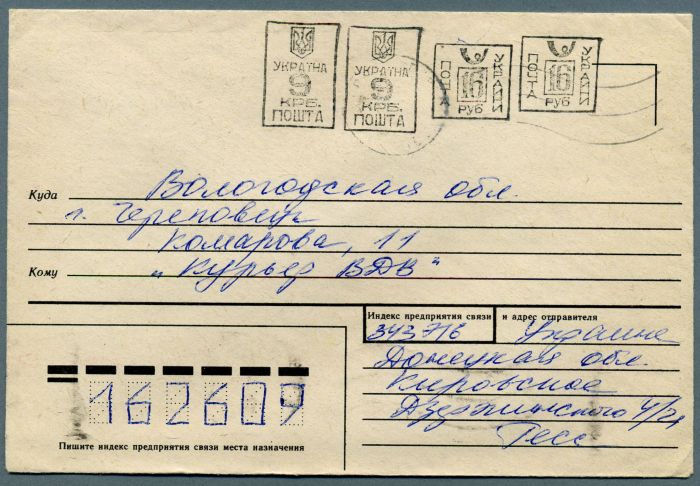 УКРАЇНА
9
КРБ.
ПОШТА
УКРАЇНА
9
КРБ.
ПОШТА
ПОШТА
16
РУБ
УКРАИНИ
ПОШТА
16
РУБ
УКРАИНИ
Куда Вологодская обл.
г. Череповец
Комарова, 11
Кому „Курьер ВДВ"
Индекс предприятия связи и адрес отправителя
343716 Украине
Донецкая обл.
Кировское
Дзержинского 4/24
162609
Пишите индекс предприятия связи места назначения